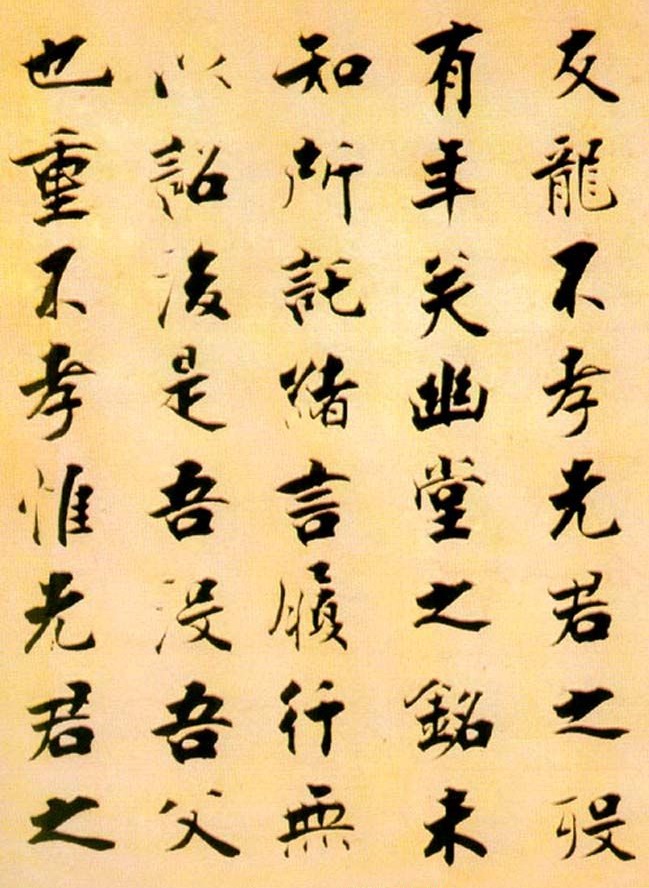 友龍不孝先君之歿
有年矣幽堂之銘未
知所託緒言履行無
以詔後是吾沒吾父
也重不孝惟先君之